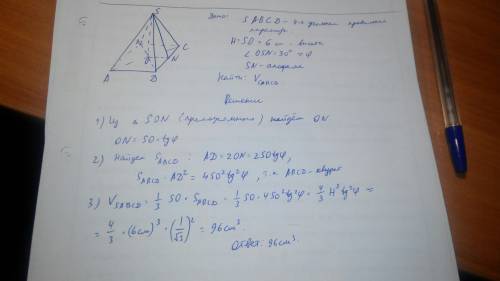 Дано: SABCD – 4-х угольная правильная
пирамида
H = SO = 6 см – высота
∠OSN = 30° = φ
SN – апофема
Найти: V_SABCD
Решение
1) Из △ SON (прямоугольного) найдём ON
ON = SO · tgφ
2) Найдём S_ABCD : AD = 2ON = 2SO tgφ,
S_ABCD = AD² = 4SO² tg²φ, т.к. ABCD – квадрат
3) V_SABCD = 1/3 SO · S_ABCD = 1/3 SO · 4SO² tg²φ = 4/3 H³ tg²φ =
= 4/3 · (6см)³ · (1/√3)² = 96 см³.
Ответ: 96 см³.
S
C
N
O
A
D